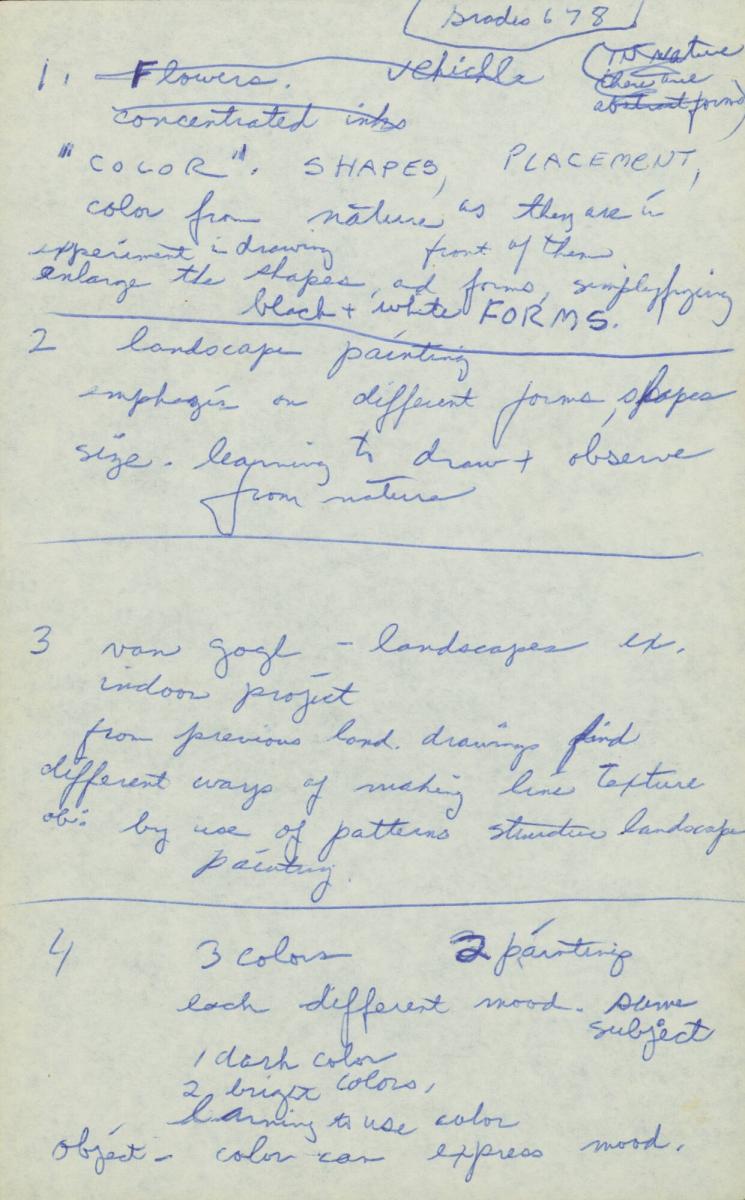 Grades 6 7 8
1. Flowers. vehichle (IN nature
there are
abstract forms)
concentrated inks
"COLOR". SHAPES, PLACEMENT,
color from nature, as they are in
front of them
experiment in drawing
enlarge the shapes, and forms, simplefying
black + white FORMS.
2 landscape painting
emphazis on different forms, shapes
size. learning to draw + observe
from nature
3 van gogh - landscapes ex.
indoor project
from previous land. drawings find
different ways of making line texture
obj: by use of patterns structure landscape
painting.
4 3 colors 2 paintings
each different mood. same
subject
1 dark color
2 bright colors,
learning to use color
Object - color can express mood.